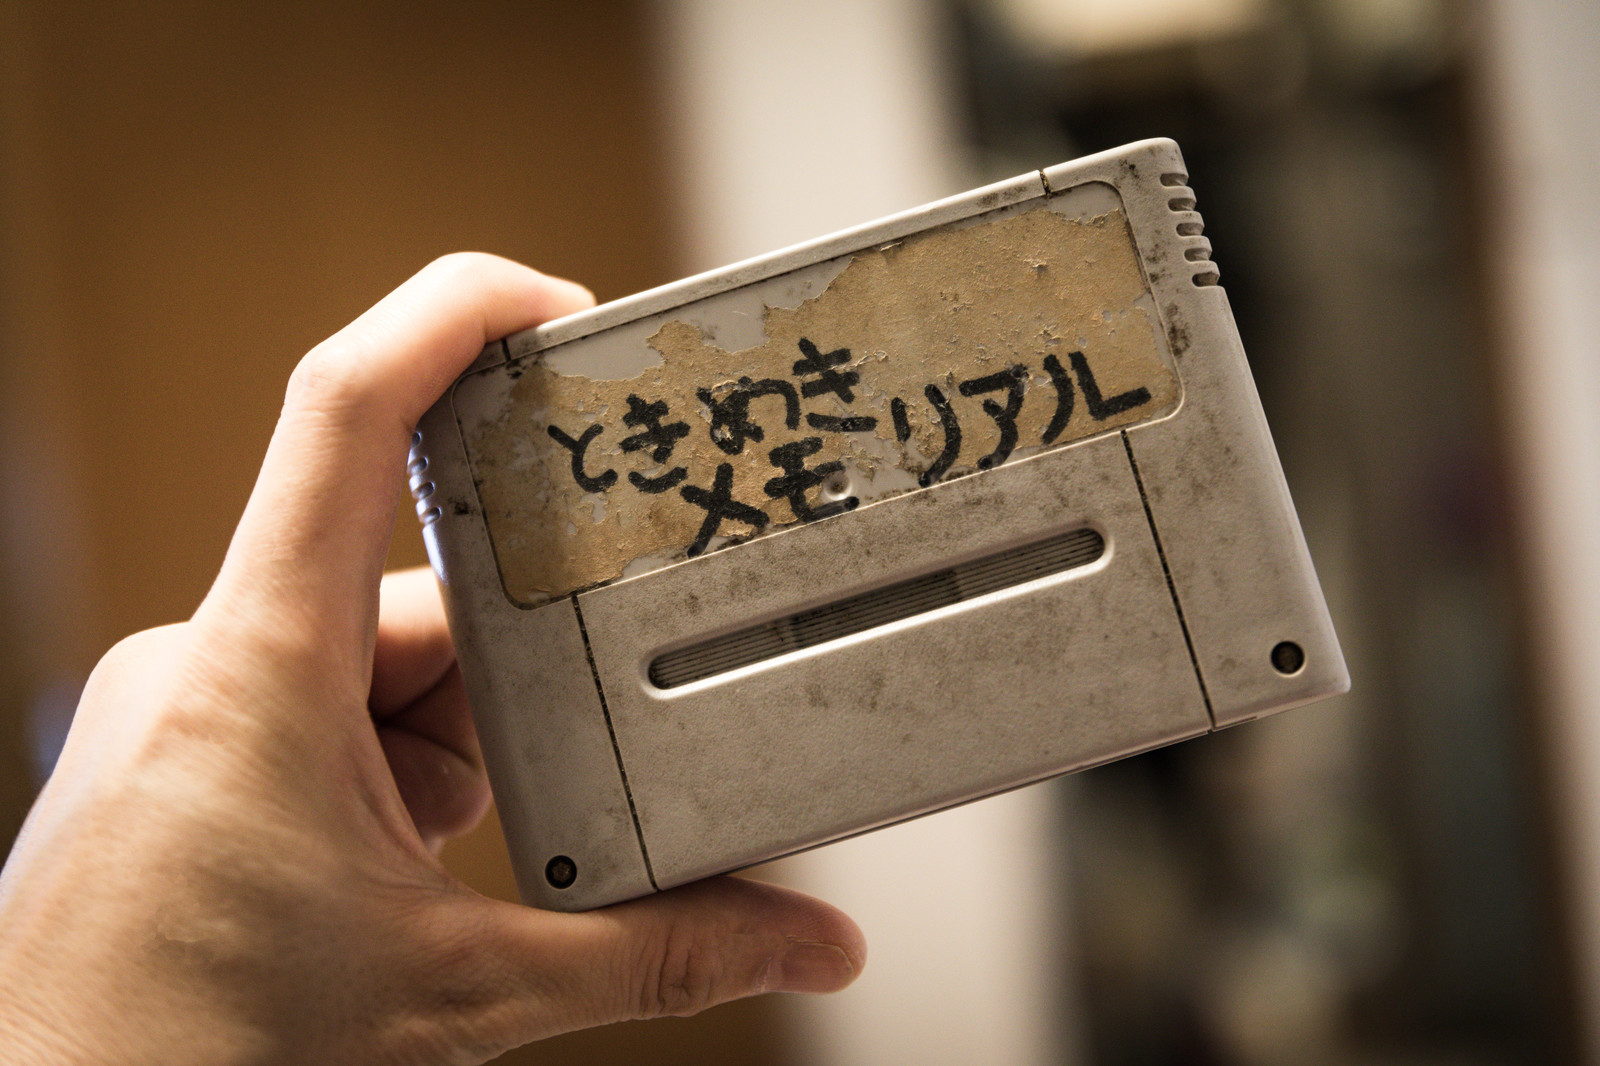 ときめき
メモリアル